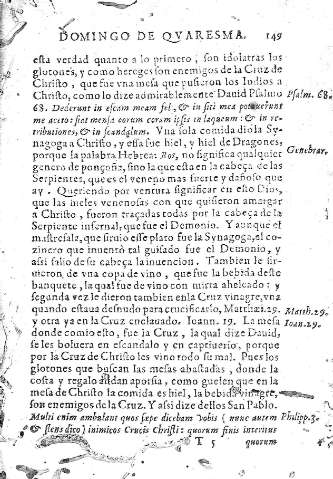 DOMINGO DE QVARESMA. 149
esta verdad quanto a lo primero, son idolatras los
glotones, y como hereges son enemigos de la Cruz de
Christo, que fue vna mesa que pusieron los Iudios a
Christo, como lo dize admirablemente Dauid Psalmo Psalm. 68.
68. Dederunt in escam meam fel, & in siti mea potauerunt
me aceto: fiat mensa eorum coram ipsis in laqueum: & in re-
tributiones, & in scandalum. Vna sola comida dio la Sy-
nagoga a Christo, y essa fue hiel, y hiel de Dragones;
porque la palabra Hebrea: Ros, no significa qualquier Genebrar.
genero de ponçoña, sino la que esta en la cabeça de las
Serpientes, que es el veneno mas fuerte y dañoso que
ay. Queriendo por ventura significar en esto Dios,
que las hieles venenosas con que quisieron amargar
a Christo, fueron traçadas todas por la cabeça de la
Serpiente infernal, que fue el Demonio. Y aunque el
mastresala, que siruio esse plato fue la Synagoga, el co-
zinero que inuentò tal guisado fue el Demonio, y
assi salio de su cabeça la inuencion. Tambien le sir-
uieron, de vna copa de vino, que fue la bebida deste
banquete, la qual fue de vino con mirra aheleado; y
segunda vez le dieron tambien en la Cruz vinagre, vna
quando estaua desnudo para crucificarlo, Matthæi. 29. Matth. 29.
y otra ya en la Cruz enclauado. Ioann. 19. La mesa Ioan. 29.
donde comio esto, fue la Cruz, la qual dize Dauid,
se les boluera en escandalo y en captiuerio, porque
por la Cruz de Christo les vino todo su mal. Pues los
glotones que buscan las mesas abastadas, donde la
costa y regalo andan aporfia, como huelen que en la
mesa de Christo la comida es hiel, la bebida vinagre,
son enemigos de la Cruz. Y assi dize dellos San Pablo.
Multi enim ambulant quos sæpe dicebam vobis (nunc autem Philipp. 3.
& flens dico) inimicos Crucis Christi: quorum finis interitus
T 5 quorum